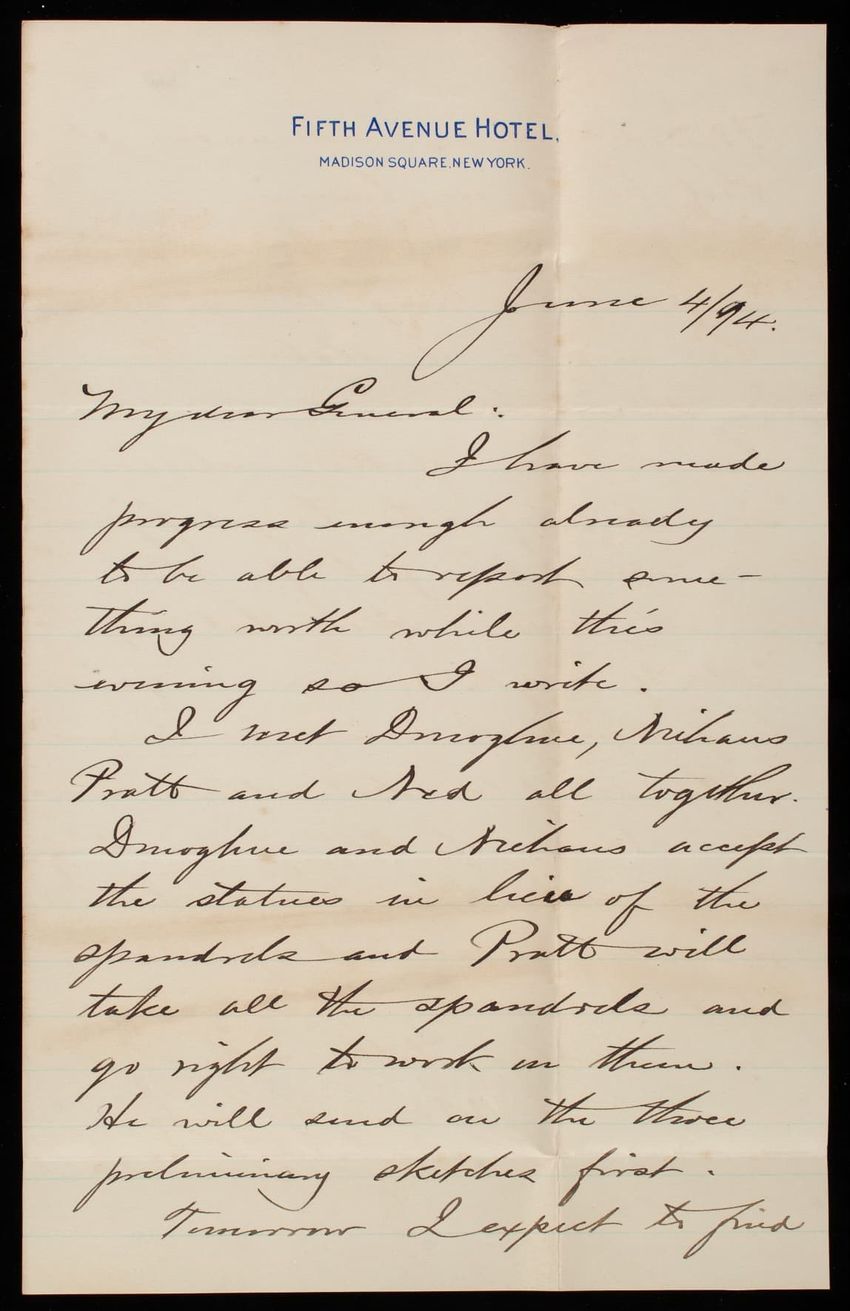 FIFTH AVENUE HOTEL,
MADISON SQUARE, NEW YORK.
June 4/94.
My dear General:
I have made
progress enough already
to be able to report some-
thing worth while this
evening so I write.
I met Donoghue, Niehaus
Pratt and Ned all together.
Donoghue and Niehaus accept
the statues in lieu of the
spandrels and Pratt will
take all the spandrels and
go right to work on them.
He will send on the three
preliminary sketches first.
Tomorrow I expect to find